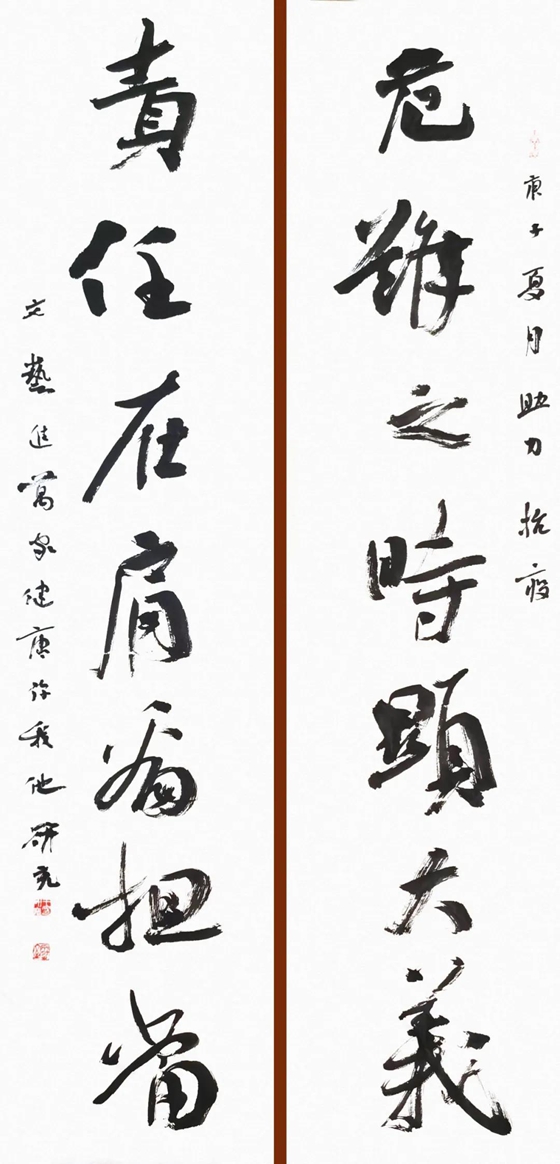 庚子夏月助力抗疫
危難之時顯大義
責任在肩看担當
文藝進萬家健康你我他